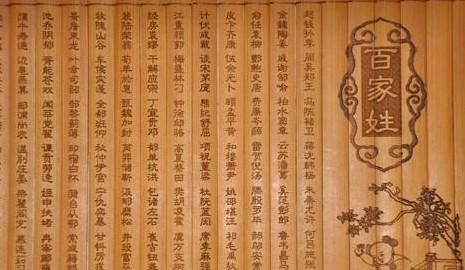 百家姓
赵钱孙李 周吴郑王 冯陈褚卫 蒋沈韩杨 朱秦尤许 何吕施张
金魏陶姜 戚谢邹喻 柏水窦章 云苏潘葛 奚范彭郎 鲁韦昌马
俞任袁柳 酆鲍史唐 费廉岑薛 雷贺倪汤 滕殷罗毕 郝邬安常
皮卞齐康 伍余元卜 顾孟平黄 和穆萧尹 姚邵湛汪 祁毛禹狄
计伏成戴 谈宋茅庞 熊纪舒屈 项祝董梁 杜阮蓝闵 席季麻强
江童颜郭 梅盛林刁 钟徐邱骆 高夏蔡田 樊胡凌霍 虞万支柯
经房裘缪 干解应宗 丁宣贲邓 郁单杭洪 包诸左石 崔吉钮龚
裴陆荣翁 荀羊於惠 甄封 芮羿储靳 汲邴糜松 井段富巫
牧隗山谷 车侯宓蓬 全郗班仰 秋仲伊宫 宁仇栾暴 甘钭厉戎
景詹束龙 叶幸司韶 郜黎蓟薄 印宿白怀 蒲邰从鄂 索咸籍赖
池乔阴郁 胥能苍双 闻莘党翟 谭贡劳逄 姬申扶堵 冉宰郦雍
濮牛寿通 边扈燕冀 郏浦尚农 温别庄晏 柴瞿阎充 慕连茹习